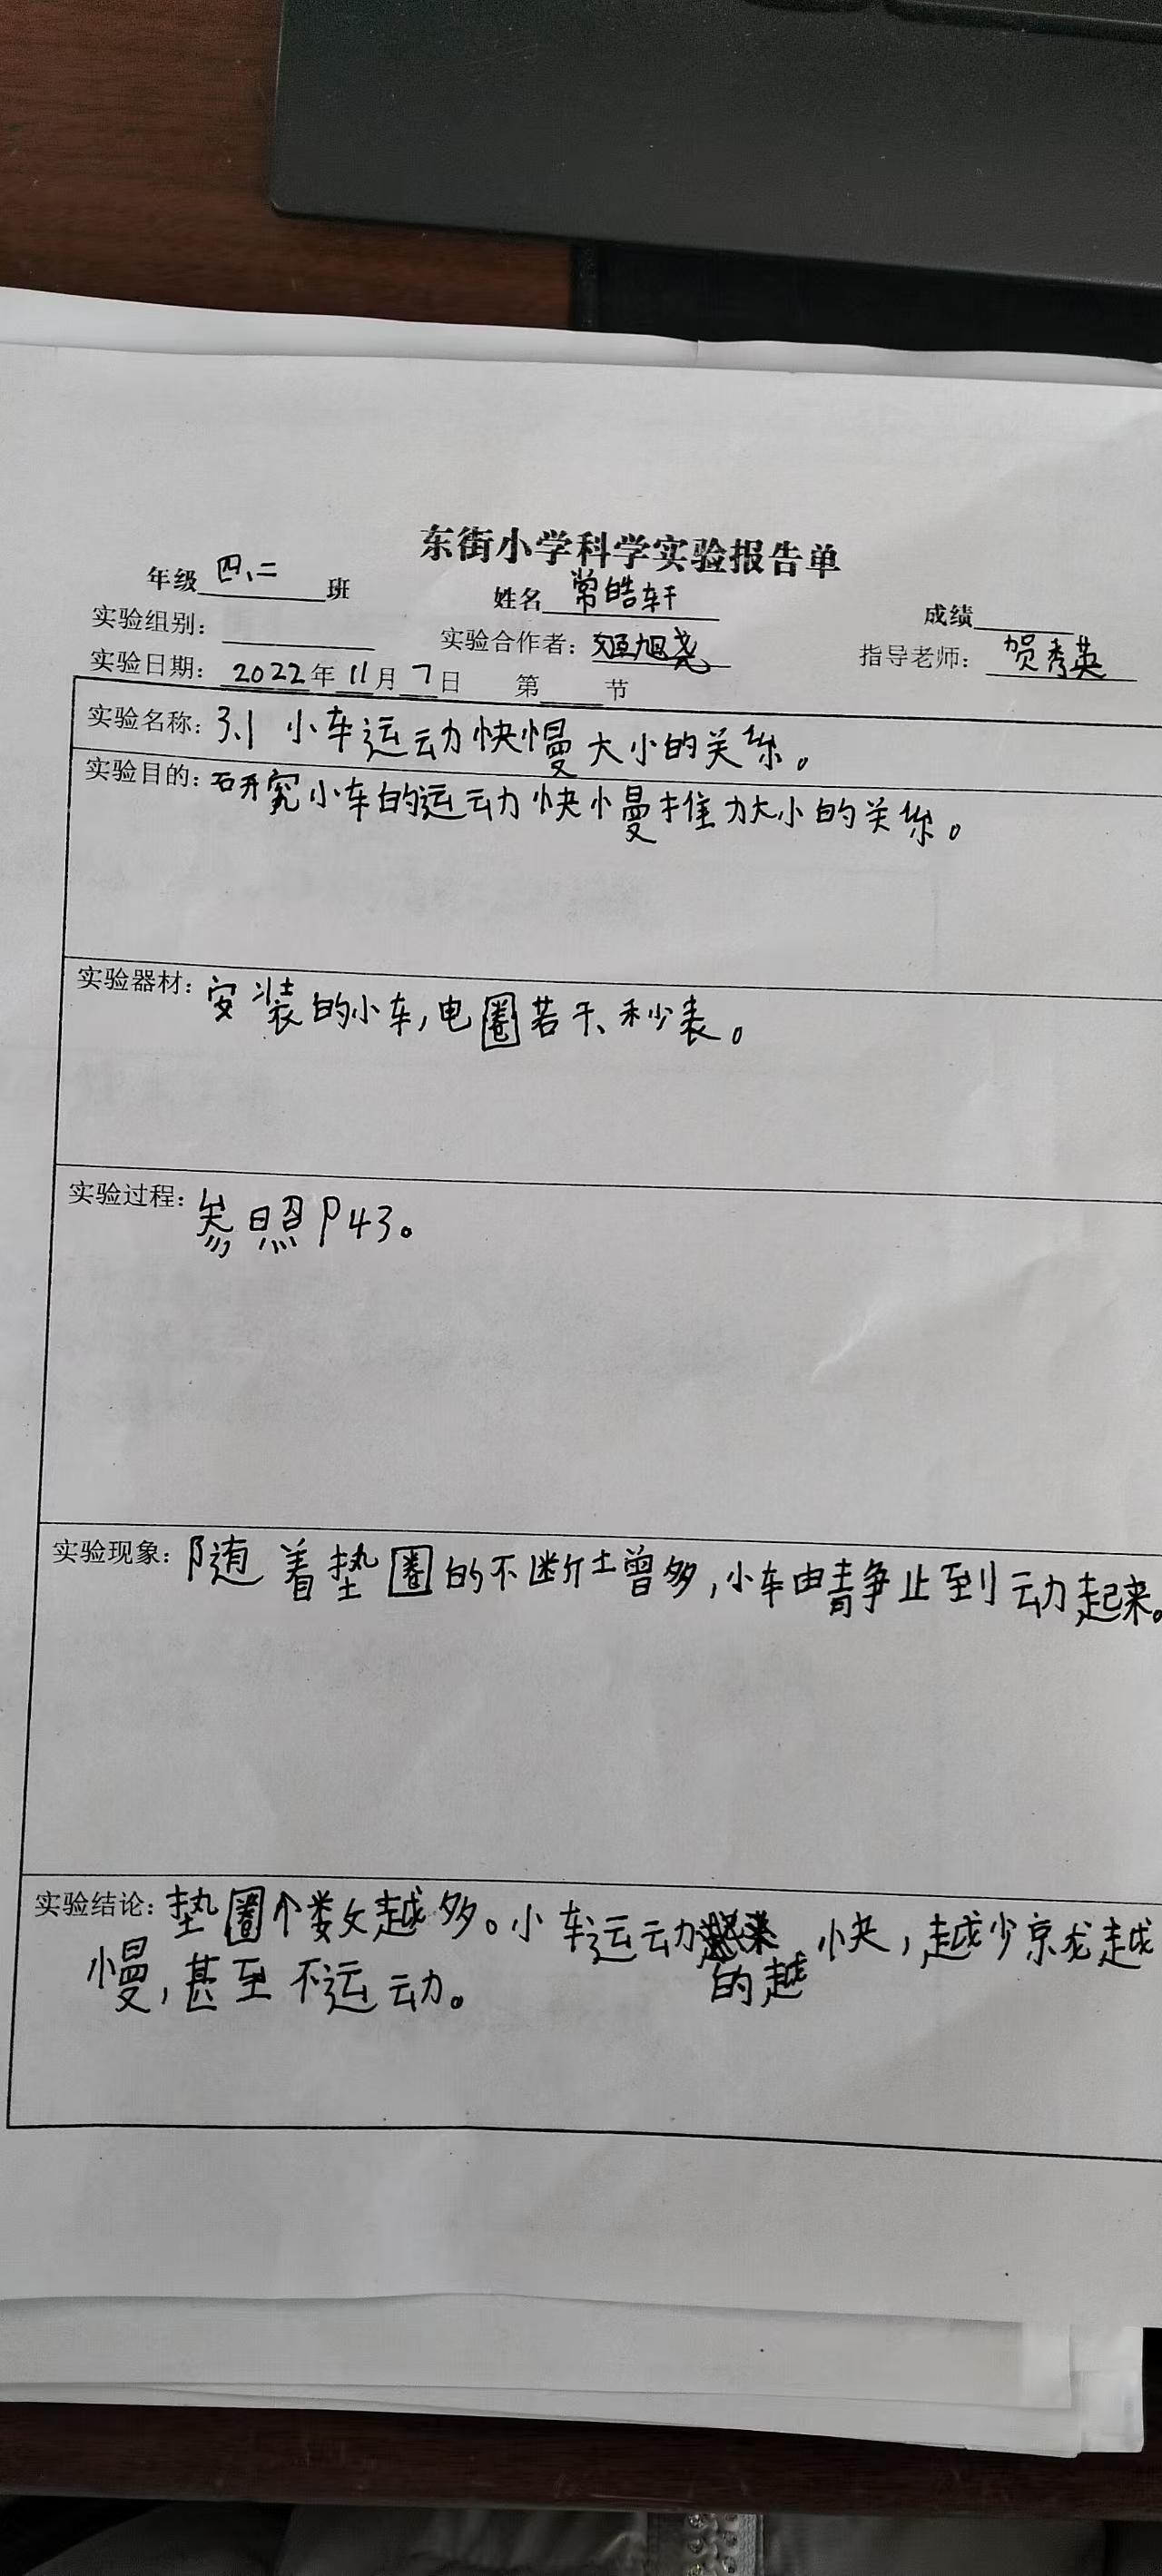 东街小学科学实验报告单
年级 四、二 班 姓名 常皓轩 成绩
实验组别: 实验合作者: 姬旭尧 指导老师: 贺秀英
实验日期: 2022年11月7日 第 节
实验名称: 3.1 小车运动快慢大小的关系。
实验目的: 研究小车的运动快慢推力大小的关系。
实验器材: 安装的小车,电圈若干、秒表。
实验过程: 参照P43。
实验现象: 随着垫圈的不断增多,小车由静止到动起来。
实验结论: 垫圈个数越多。小车运动的越快,越少就越
慢,甚至不运动。